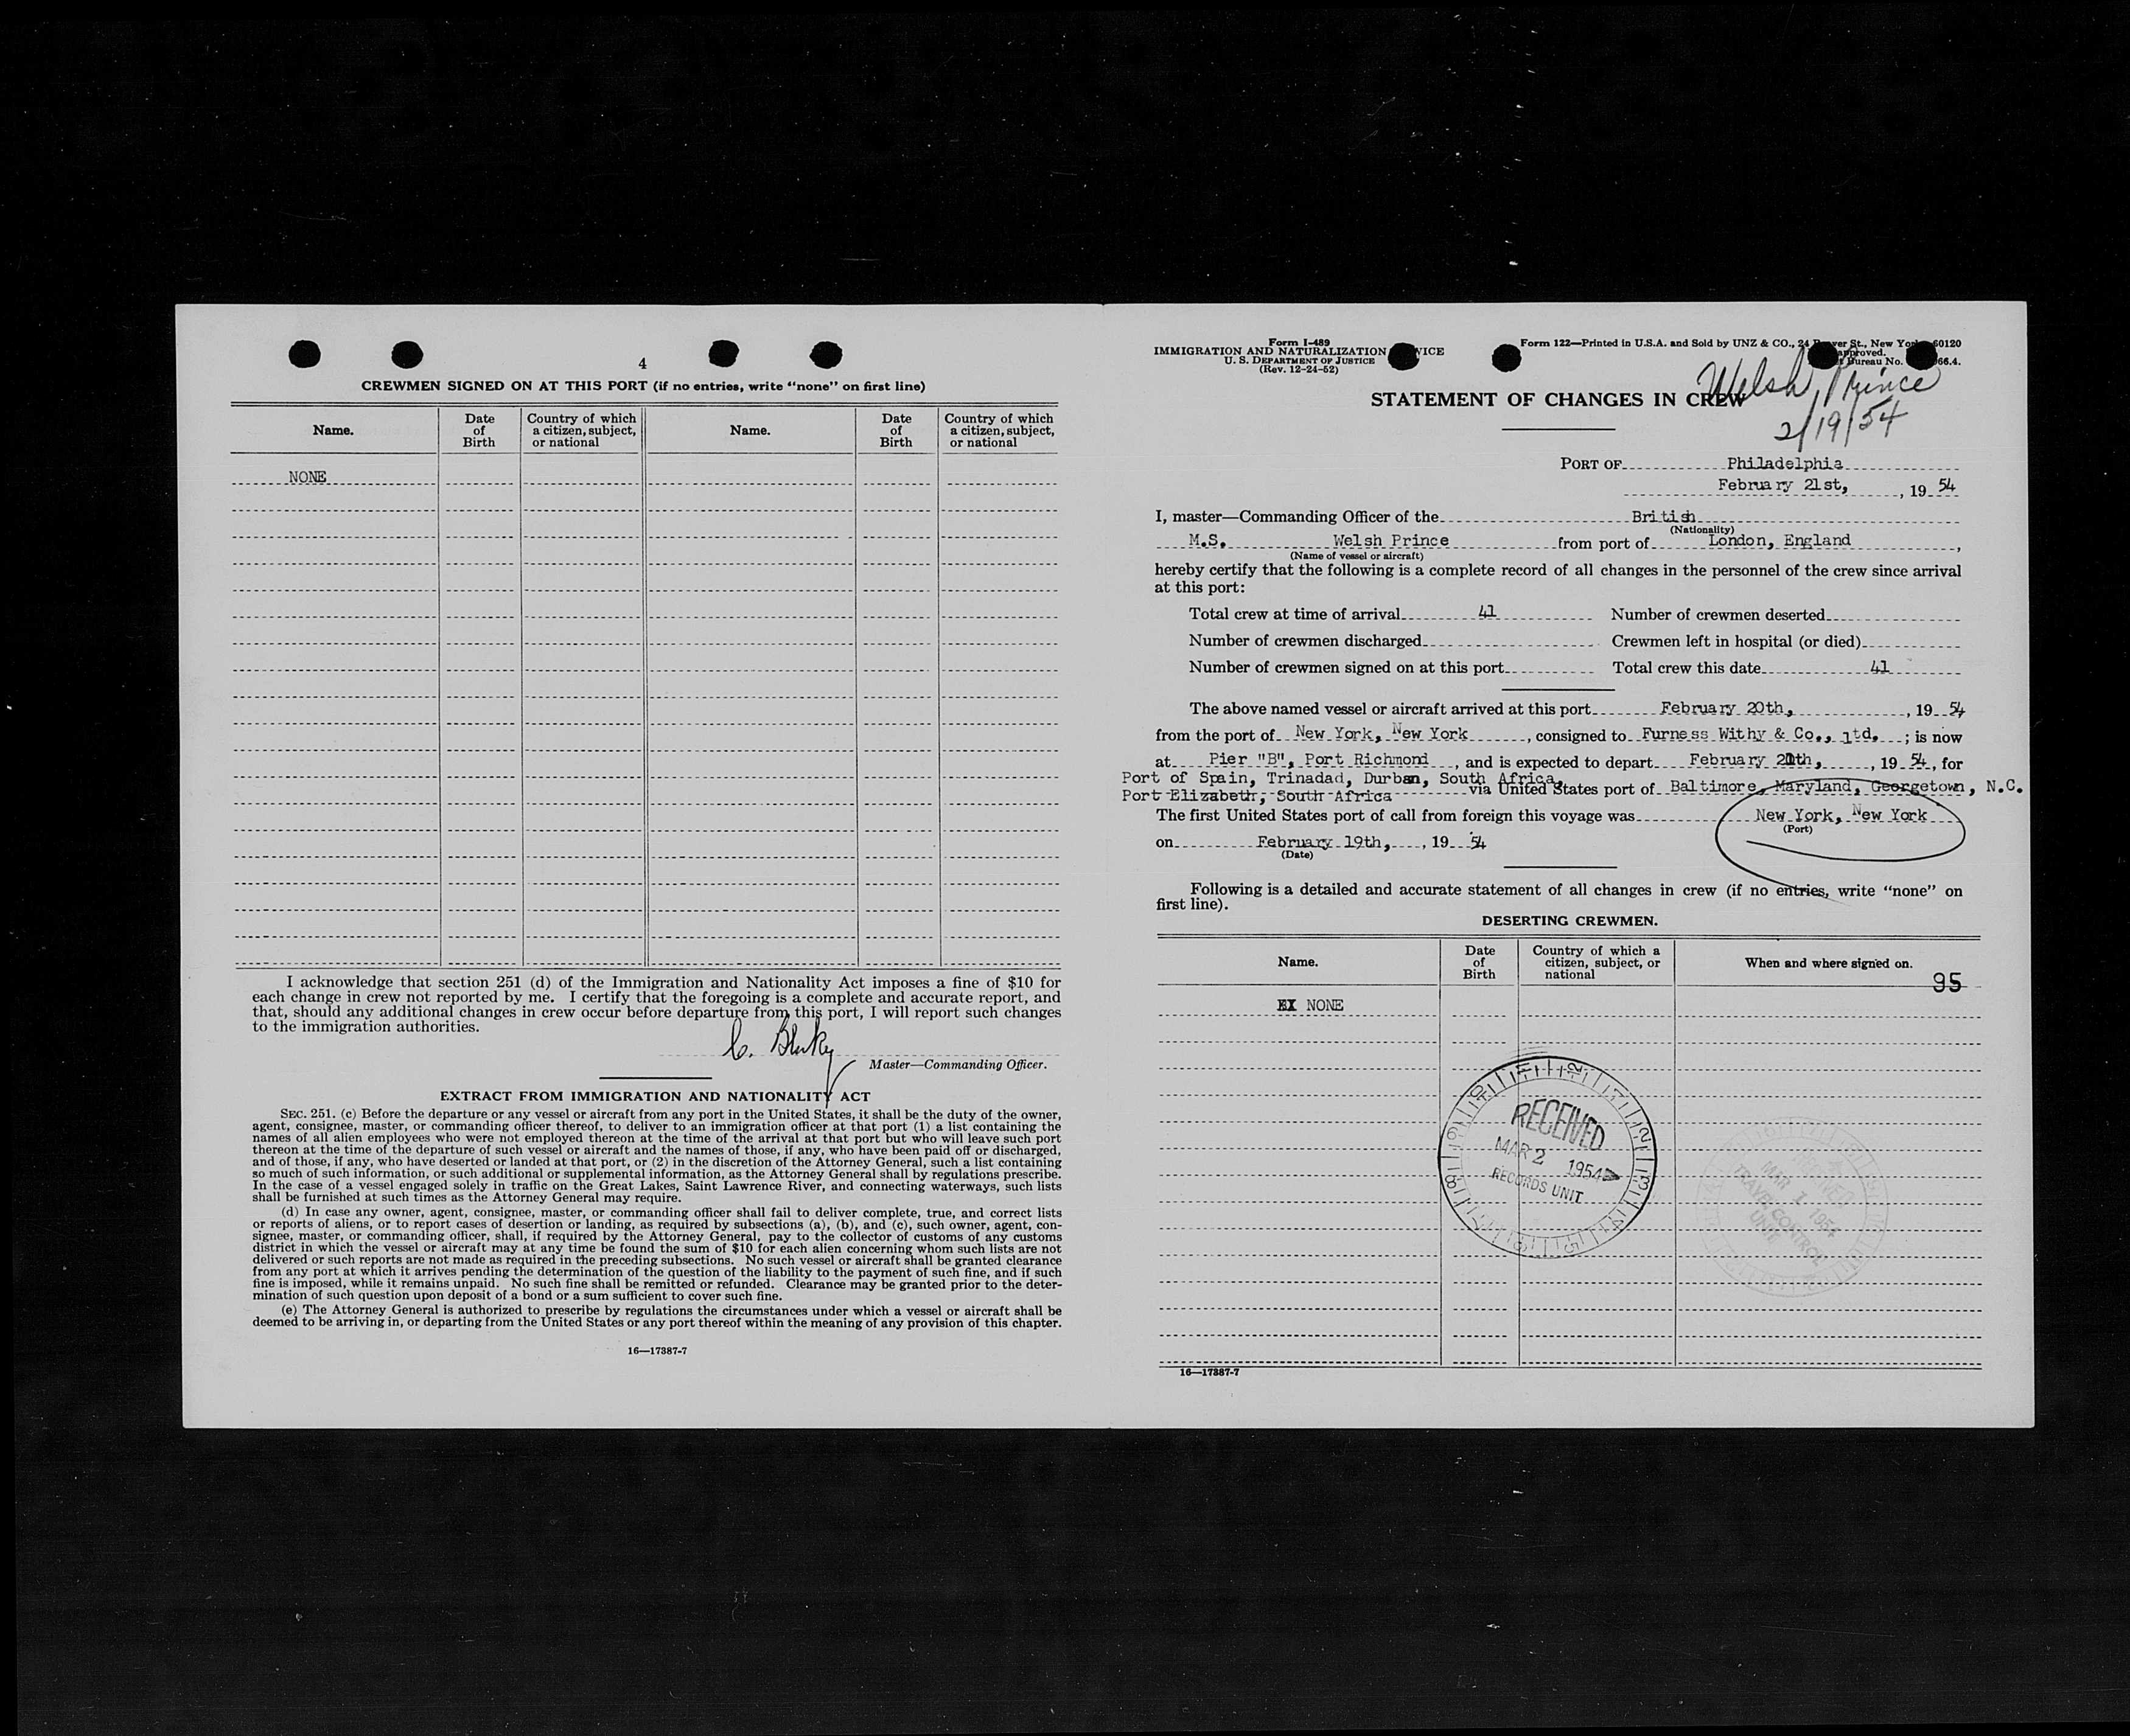 4
CREWMEN SIGNED ON AT THIS PORT (if no entries, write “none” on first line)
Name. Date of Birth Country of which a citizen, subject, or national Name. Date of Birth Country of which a citizen, subject, or national
NONE
I acknowledge that section 251 (d) of the Immigration and Nationality Act imposes a fine of $10 for
each change in crew not reported by me. I certify that the foregoing is a complete and accurate report, and
that, should any additional changes in crew occur before departure from this port, I will report such changes
to the immigration authorities.
Master—Commanding Officer.
EXTRACT FROM IMMIGRATION AND NATIONALITY ACT
SEC. 251. (c) Before the departure or any vessel or aircraft from any port in the United States, it shall be the duty of the owner,
agent, consignee, master, or commanding officer thereof, to deliver to an immigration officer at that port (1) a list containing the
names of all alien employees who were not employed thereon at the time of the arrival at that port but who will leave such port
thereon at the time of the departure of such vessel or aircraft and the names of those, if any, who have been paid off or discharged,
and of those, if any, who have deserted or landed at that port, or (2) in the discretion of the Attorney General, such a list containing
so much of such information, or such additional or supplemental information, as the Attorney General shall by regulations prescribe.
In the case of a vessel engaged solely in traffic on the Great Lakes, Saint Lawrence River, and connecting waterways, such lists
shall be furnished at such times as the Attorney General may require.
(d) In case any owner, agent, consignee, master, or commanding officer shall fail to deliver complete, true, and correct lists
or reports of aliens, or to report cases of desertion or landing, as required by subsections (a), (b), and (c), such owner, agent, con-
signee, master, or commanding officer, shall, if required by the Attorney General, pay to the collector of customs of any customs
district in which the vessel or aircraft may at any time be found the sum of $10 for each alien concerning whom such lists are not
delivered or such reports are not made as required in the preceding subsections. No such vessel or aircraft shall be granted clearance
from any port at which it arrives pending the determination of the question of the liability to the payment of such fine, and if such
fine is imposed, while it remains unpaid. No such fine shall be remitted or refunded. Clearance may be granted prior to the deter-
mination of such question upon deposit of a bond or a sum sufficient to cover such fine.
(e) The Attorney General is authorized to prescribe by regulations the circumstances under which a vessel or aircraft shall be
deemed to be arriving in, or departing from the United States or any port thereof within the meaning of any provision of this chapter.
16—17387-7
Form I-489
IMMIGRATION AND NATURALIZATION VICE
U. S. DEPARTMENT OF JUSTICE
(Rev. 12-24-52)
Form 122—Printed in U.S.A. and Sold by UNZ & CO., 24 ver St., New Yor 60120
approved.
Bureau No. 66.4.
Welsh Prince
2/19/54
STATEMENT OF CHANGES IN CREW
PORT OF Philadelphia
February 21st, , 19 54
I, master—Commanding Officer of the British
(Nationality)
M.S. Welsh Prince from port of London, England ,
(Name of vessel or aircraft)
hereby certify that the following is a complete record of all changes in the personnel of the crew since arrival
at this port:
Total crew at time of arrival 41 Number of crewmen deserted
Number of crewmen discharged Crewmen left in hospital (or died)
Number of crewmen signed on at this port Total crew this date 41
The above named vessel or aircraft arrived at this port February 20th, , 19 54
from the port of New York, New York , consigned to Furness Withy & Co., ltd. ; is now
at Pier "B", Port Richmond , and is expected to depart February , 19 54, for
Port of Spain, Trinadad, Durban, South Africa,
Port Elizabeth, South Africa via United States port of Baltimore, Maryland, Georgetown, N.C.
The first United States port of call from foreign this voyage was New York, New York
(Port)
on February 19th, , 19 54
(Date)
Following is a detailed and accurate statement of all changes in crew (if no entries, write “none” on
first line).
DESERTING CREWMEN.
Name. Date of Birth Country of which a citizen, subject, or national When and where signed on.
95
NONE
RECEIVED
MAR 2 1954
RECORDS UNIT
MAR 1 1954
TRAVEL CONTROL
UNIT
16—17387-7